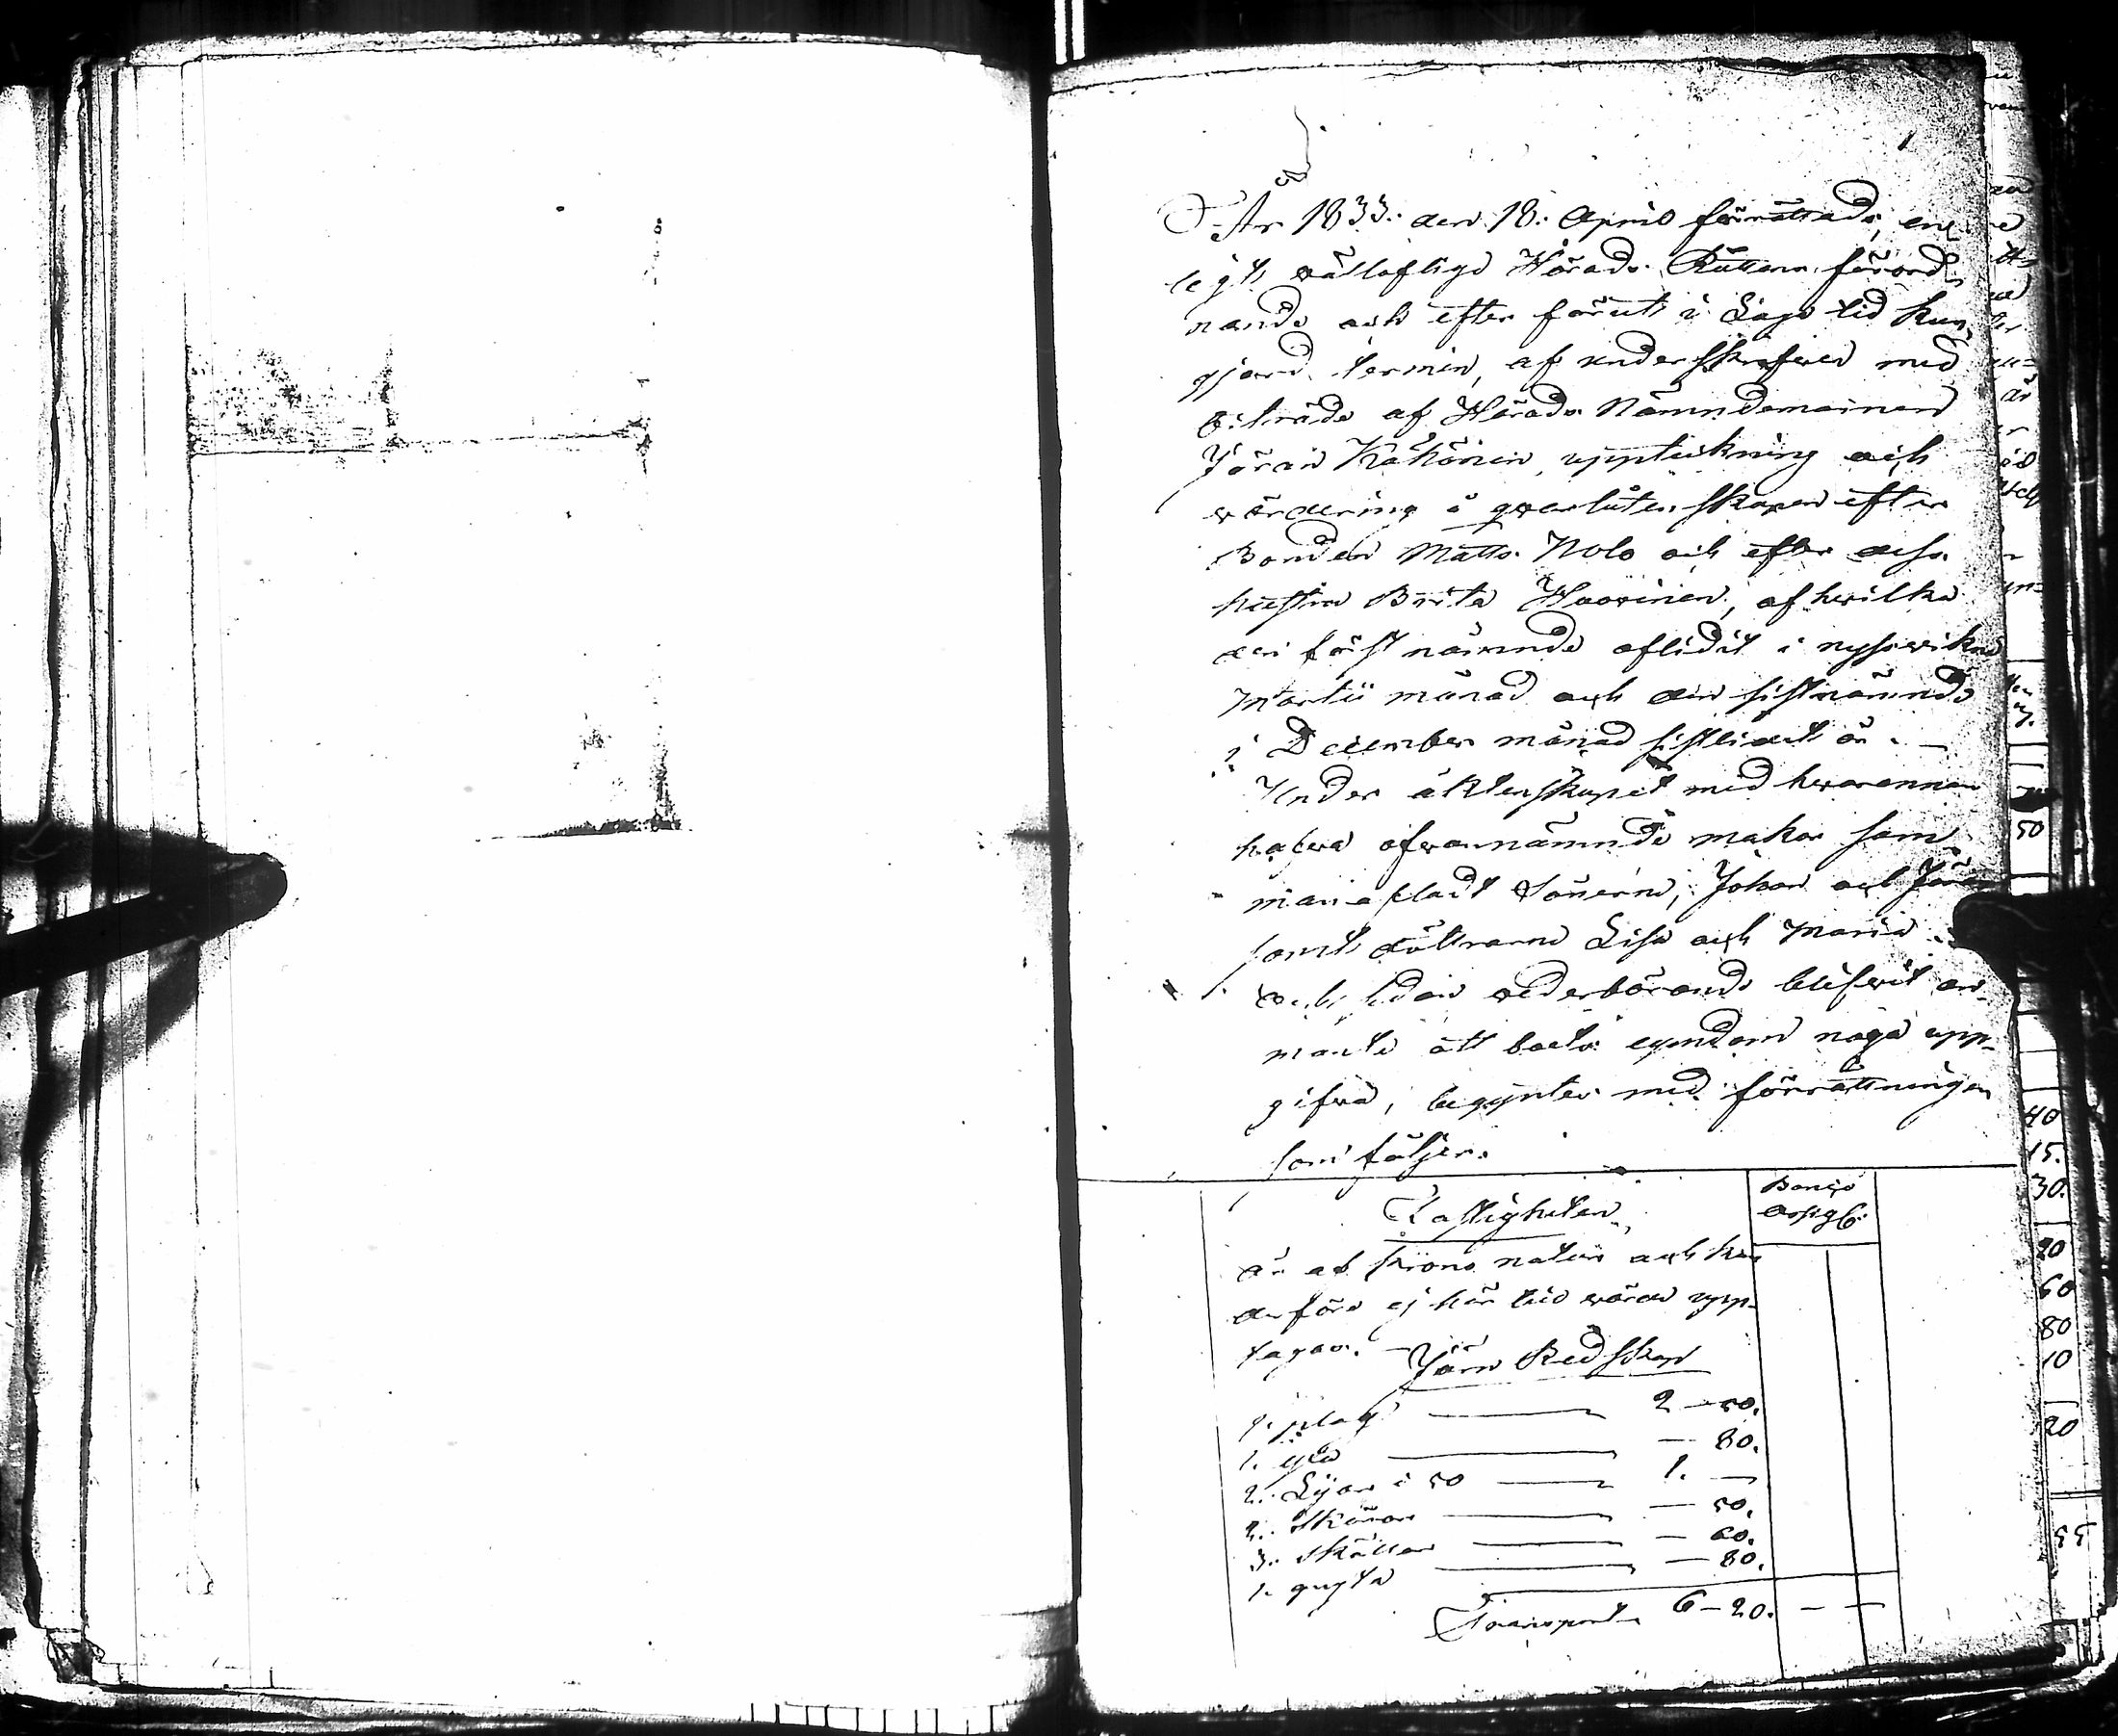 1
År 1833. den 18. April förrättades, en„
ligt wällofliga Härads Rättens förord„
nande och efter förut i Laga tid kun„
gjord termin, af underskrefwen med
biträde af Härads Nämndemannen
Jöran Kähönen, uppteckning och
wärdering å qwarlåtenskapen efter
Bonden Matts Nolo och efter dess
hustru Brita Haarinen, af hwilka
den först nämnde aflidit i nysswikne
Martii månad och den sistnämnde
i December månad sistledit år. —
Under äktenskapet med hwarannan
hafwa ofwannämnde makar sam„
manafladt Sönerne, Johan och Jöran
samt döttrarne Lisa och Maria
och sedan wederbörande blifwit an„
mante att boets egendom noga upp„
gifwa, begyntes med förrättningen
som följer.
Fastigheten
Banco
Ass. Rb.
är af krono natur och kan
derföre ej här till wärde upp„
tagas. —
Järn Redskap
1. plog 2 – 50.
1. yxa – 80.
2. Lijar à 50 1. –
2. Skäror – 50.
3. skällor – 60.
1. gryta – 80.
Transport 6 – 20. – –
50
40
15.
30.
20
60
80
10
20
55